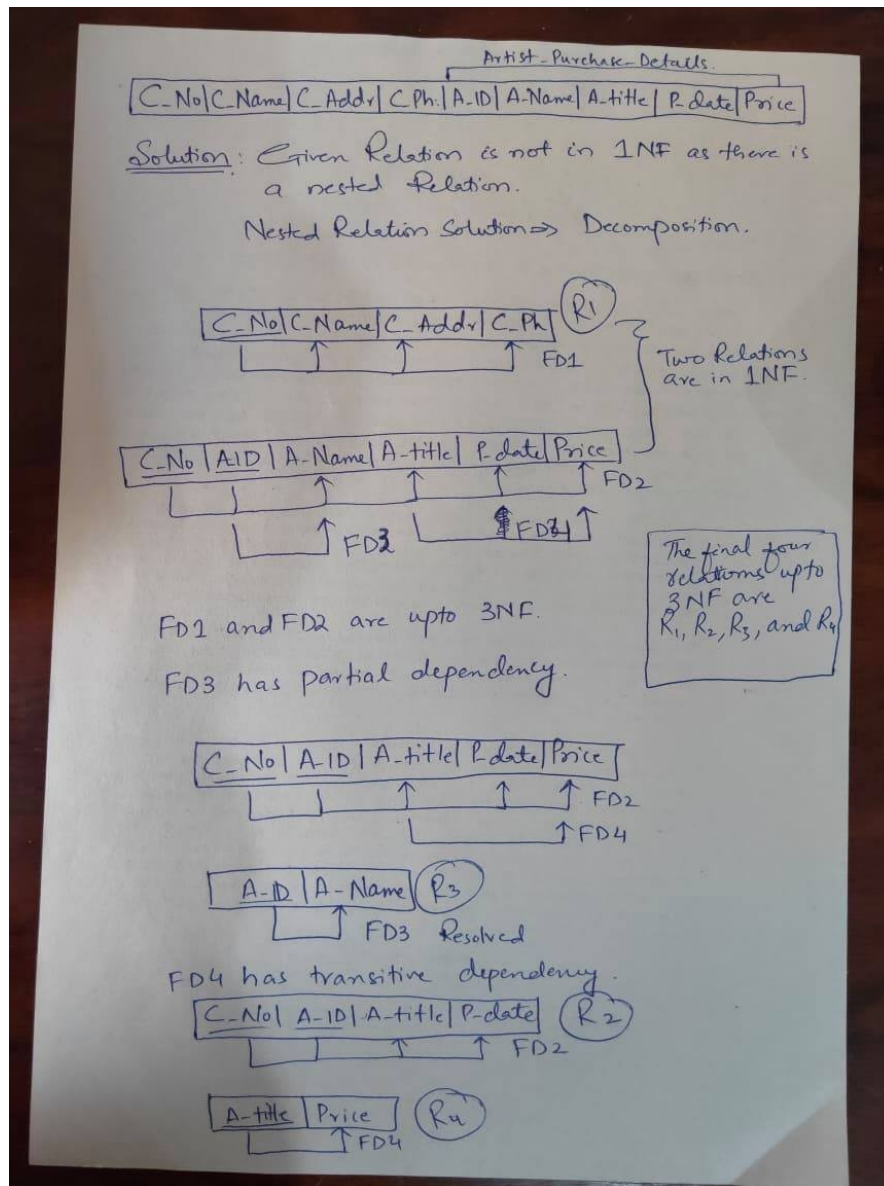 Artist-Purchase-Details.
C_No|C_Name|C_Addr|C_Ph.|A_ID|A-Name|A-title|P_date|Price
Solution: Given Relation is not in 1NF as there is
a nested Relation.
Nested Relation Solution => Decomposition.
C_No|C_Name|C_Addr|C_Ph R1
FD1
Two Relations
are in 1NF.
C_No|A_ID|A-Name|A-title|P_date|Price
FD2
FD3 FD4
The final four
relations upto
3NF are
R1, R2, R3, and R4
FD1 and FD2 are upto 3NF.
FD3 has partial dependency.
C_No|A-ID|A-title|P_date|Price
FD2
FD4
A-ID|A-Name R3
FD3 Resolved
FD4 has transitive dependency.
C_No|A-ID|A-title|P-date R2
FD2
A-title|Price R4
FD4